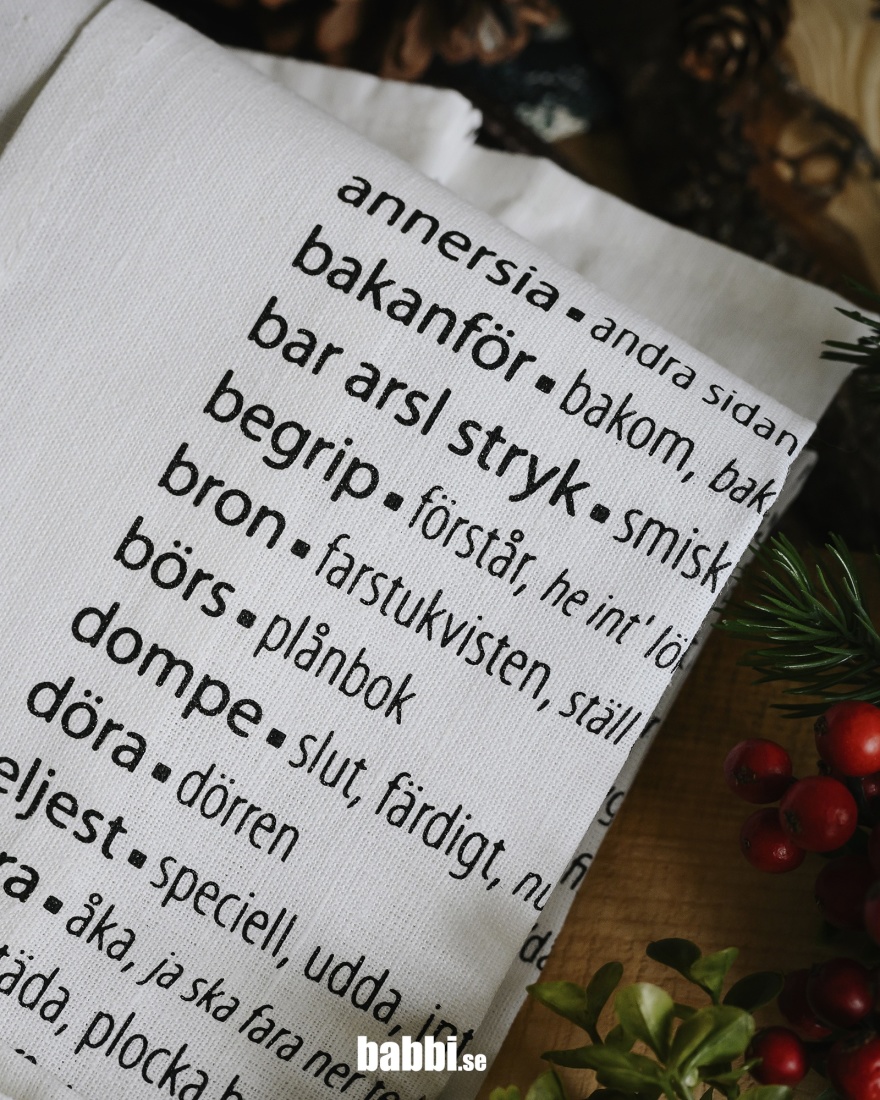 annersia ▪ andra sidan
bakanför ▪ bakom,
bar arsl stryk ▪ smisk
begrip ▪ förstår, he int'
bron ▪ farstukvisten,
börs ▪ plånbok
dompe ▪ slut, färdigt,
döra ▪ dörren
▪ speciell, udda,
▪ åka, ja ska fara ner
plocka
babbi.se